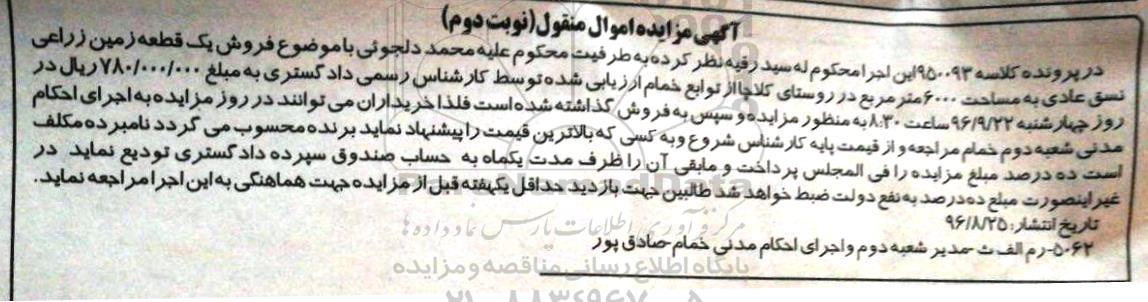 آگهی مزایده اموال منقول (نوبت دوم)
در پرونده کلاسه ۹۵۰۰۹۳ این اجرا محکوم له سید رقیه نظر کرده به طرفیت محکوم علیه محمد دلجوئی با موضوع فروش یک قطعه زمین زراعی
نسق عادی به مساحت ۶۰۰۰ متر مربع در روستای کلاچا از توابع خمام ارزیابی شده توسط کارشناس رسمی دادگستری به مبلغ ۷۸۰/۰۰۰/۰۰۰ ریال در
روز چهارشنبه ۹۶/۹/۲۲ ساعت ۸:۳۰ به منظور مزایده و سپس به فروش گذاشته شده است فلذا خریداران می توانند در روز مزایده به اجرای احکام
مدنی شعبه دوم خمام مراجعه و از قیمت پایه کارشناس شروع و به کسی که بالاترین قیمت را پیشنهاد نماید برنده محسوب می گردد نامبرده مکلف
است ده درصد مبلغ مزایده را فی المجلس پرداخت و مابقی آن را ظرف مدت یکماه به حساب صندوق سپرده دادگستری تودیع نماید در
غیر اینصورت مبلغ ده درصد به نفع دولت ضبط خواهد شد طالبین جهت بازدید حداقل یکهفته قبل از مزایده جهت هماهنگی به این اجرا مراجعه نماید.
تاریخ انتشار: ۹۶/۸/۲۵
۵۰۶۲-رم الف ث-مدیر شعبه دوم و اجرای احکام مدنی خمام-صادق پور
مرکز فرآوری اطلاعات پارس نماد داده ها
پایگاه اطلاع رسانی مناقصه و مزایده